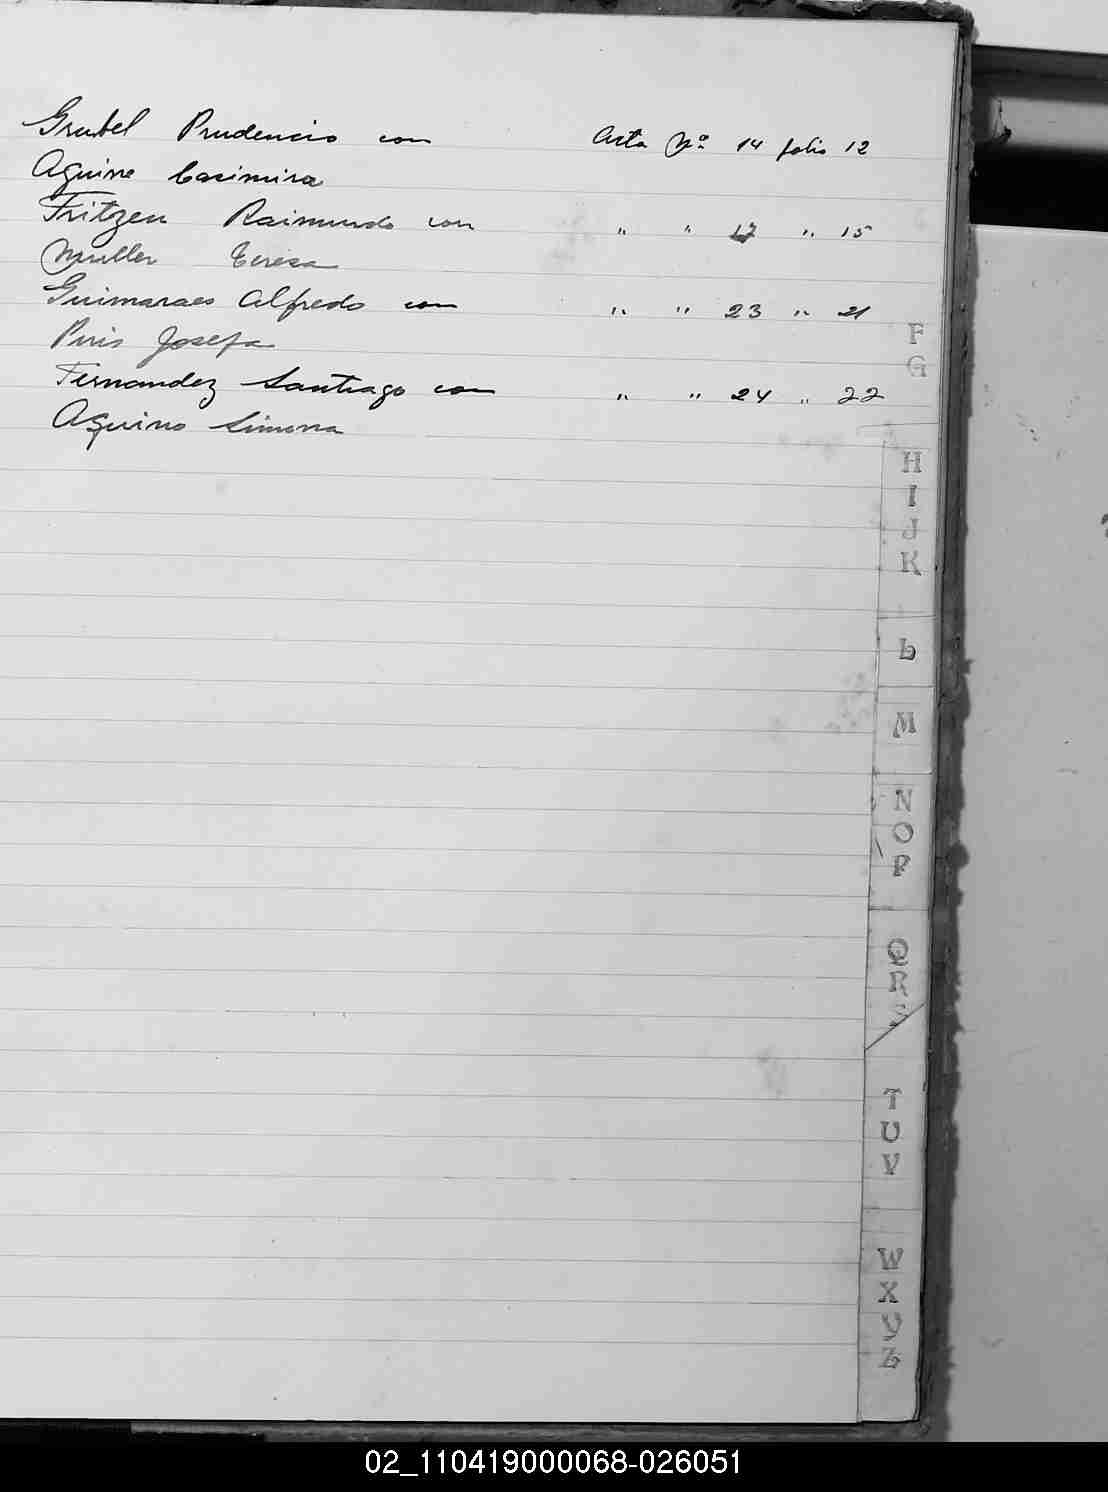 Grabel Prudencio con Acta Nº 14 folio 12
Aguirre Casimira
Fritzen Raimundo con " " 17 " 15
Muller Teresa
Guimaraes Alfredo con " " 23 " 21
Piris Josefa
Fernandez Santiago con " " 24 " 22
Aquino Simona
F
G
H
I
J
K
L
M
N
O
P
Q
R
S
T
U
V
W
X
Y
Z
02_110419000068-026051